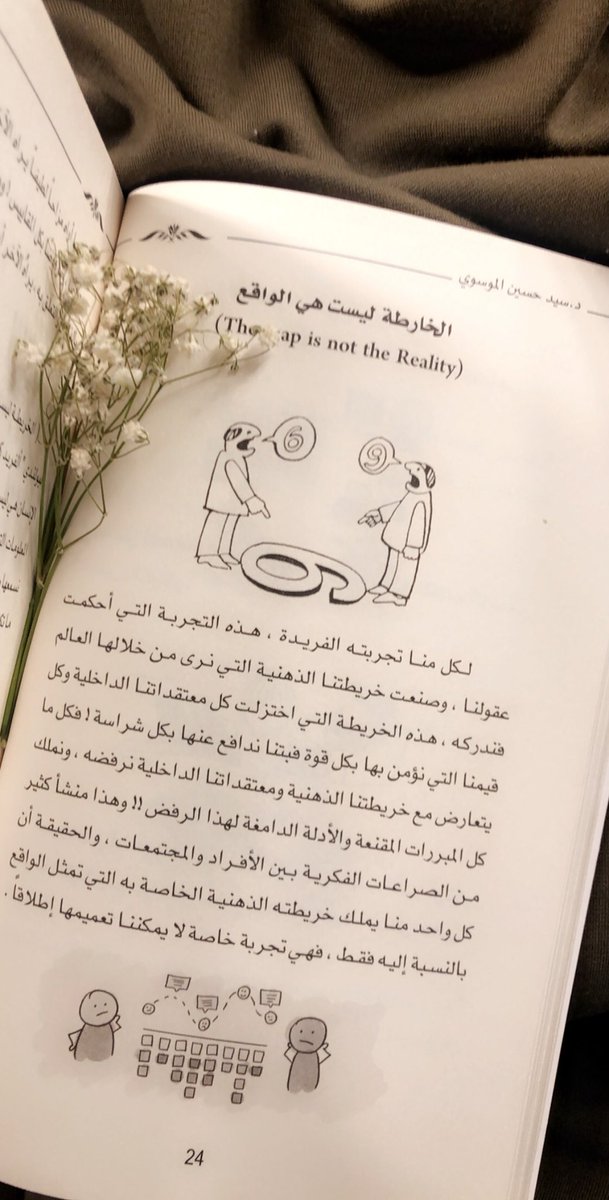 د.سيد حسين الموسوي
الخارطة ليست هي الواقع
(The map is not the Reality)
6
9
6
لكل منا تجربته الفريدة ، هذه التجربة التي أحكمت
عقولنا ، وصنعت خريطتنا الذهنية التي نرى من خلالها العالم
فندركه ، هذه الخريطة التي اختزلت كل معتقداتنا الداخلية وكل
قيمنا التي نؤمن بها بكل قوة فبتنا ندافع عنها بكل شراسة ! فكل ما
يتعارض مع خريطتنا الذهنية ومعتقداتنا الداخلية نرفضه ، ونملك
كل المبررات المقنعة والأدلة الدامغة لهذا الرفض !! وهذا منشأ كثير
من الصراعات الفكرية بين الأفراد والمجتمعات ، والحقيقة أن
كل واحد منا يملك خريطته الذهنية الخاصة به التي تمثل الواقع
بالنسبة إليه فقط ، فهي تجربة خاصة لا يمكننا تعميمها إطلاقاً .
24